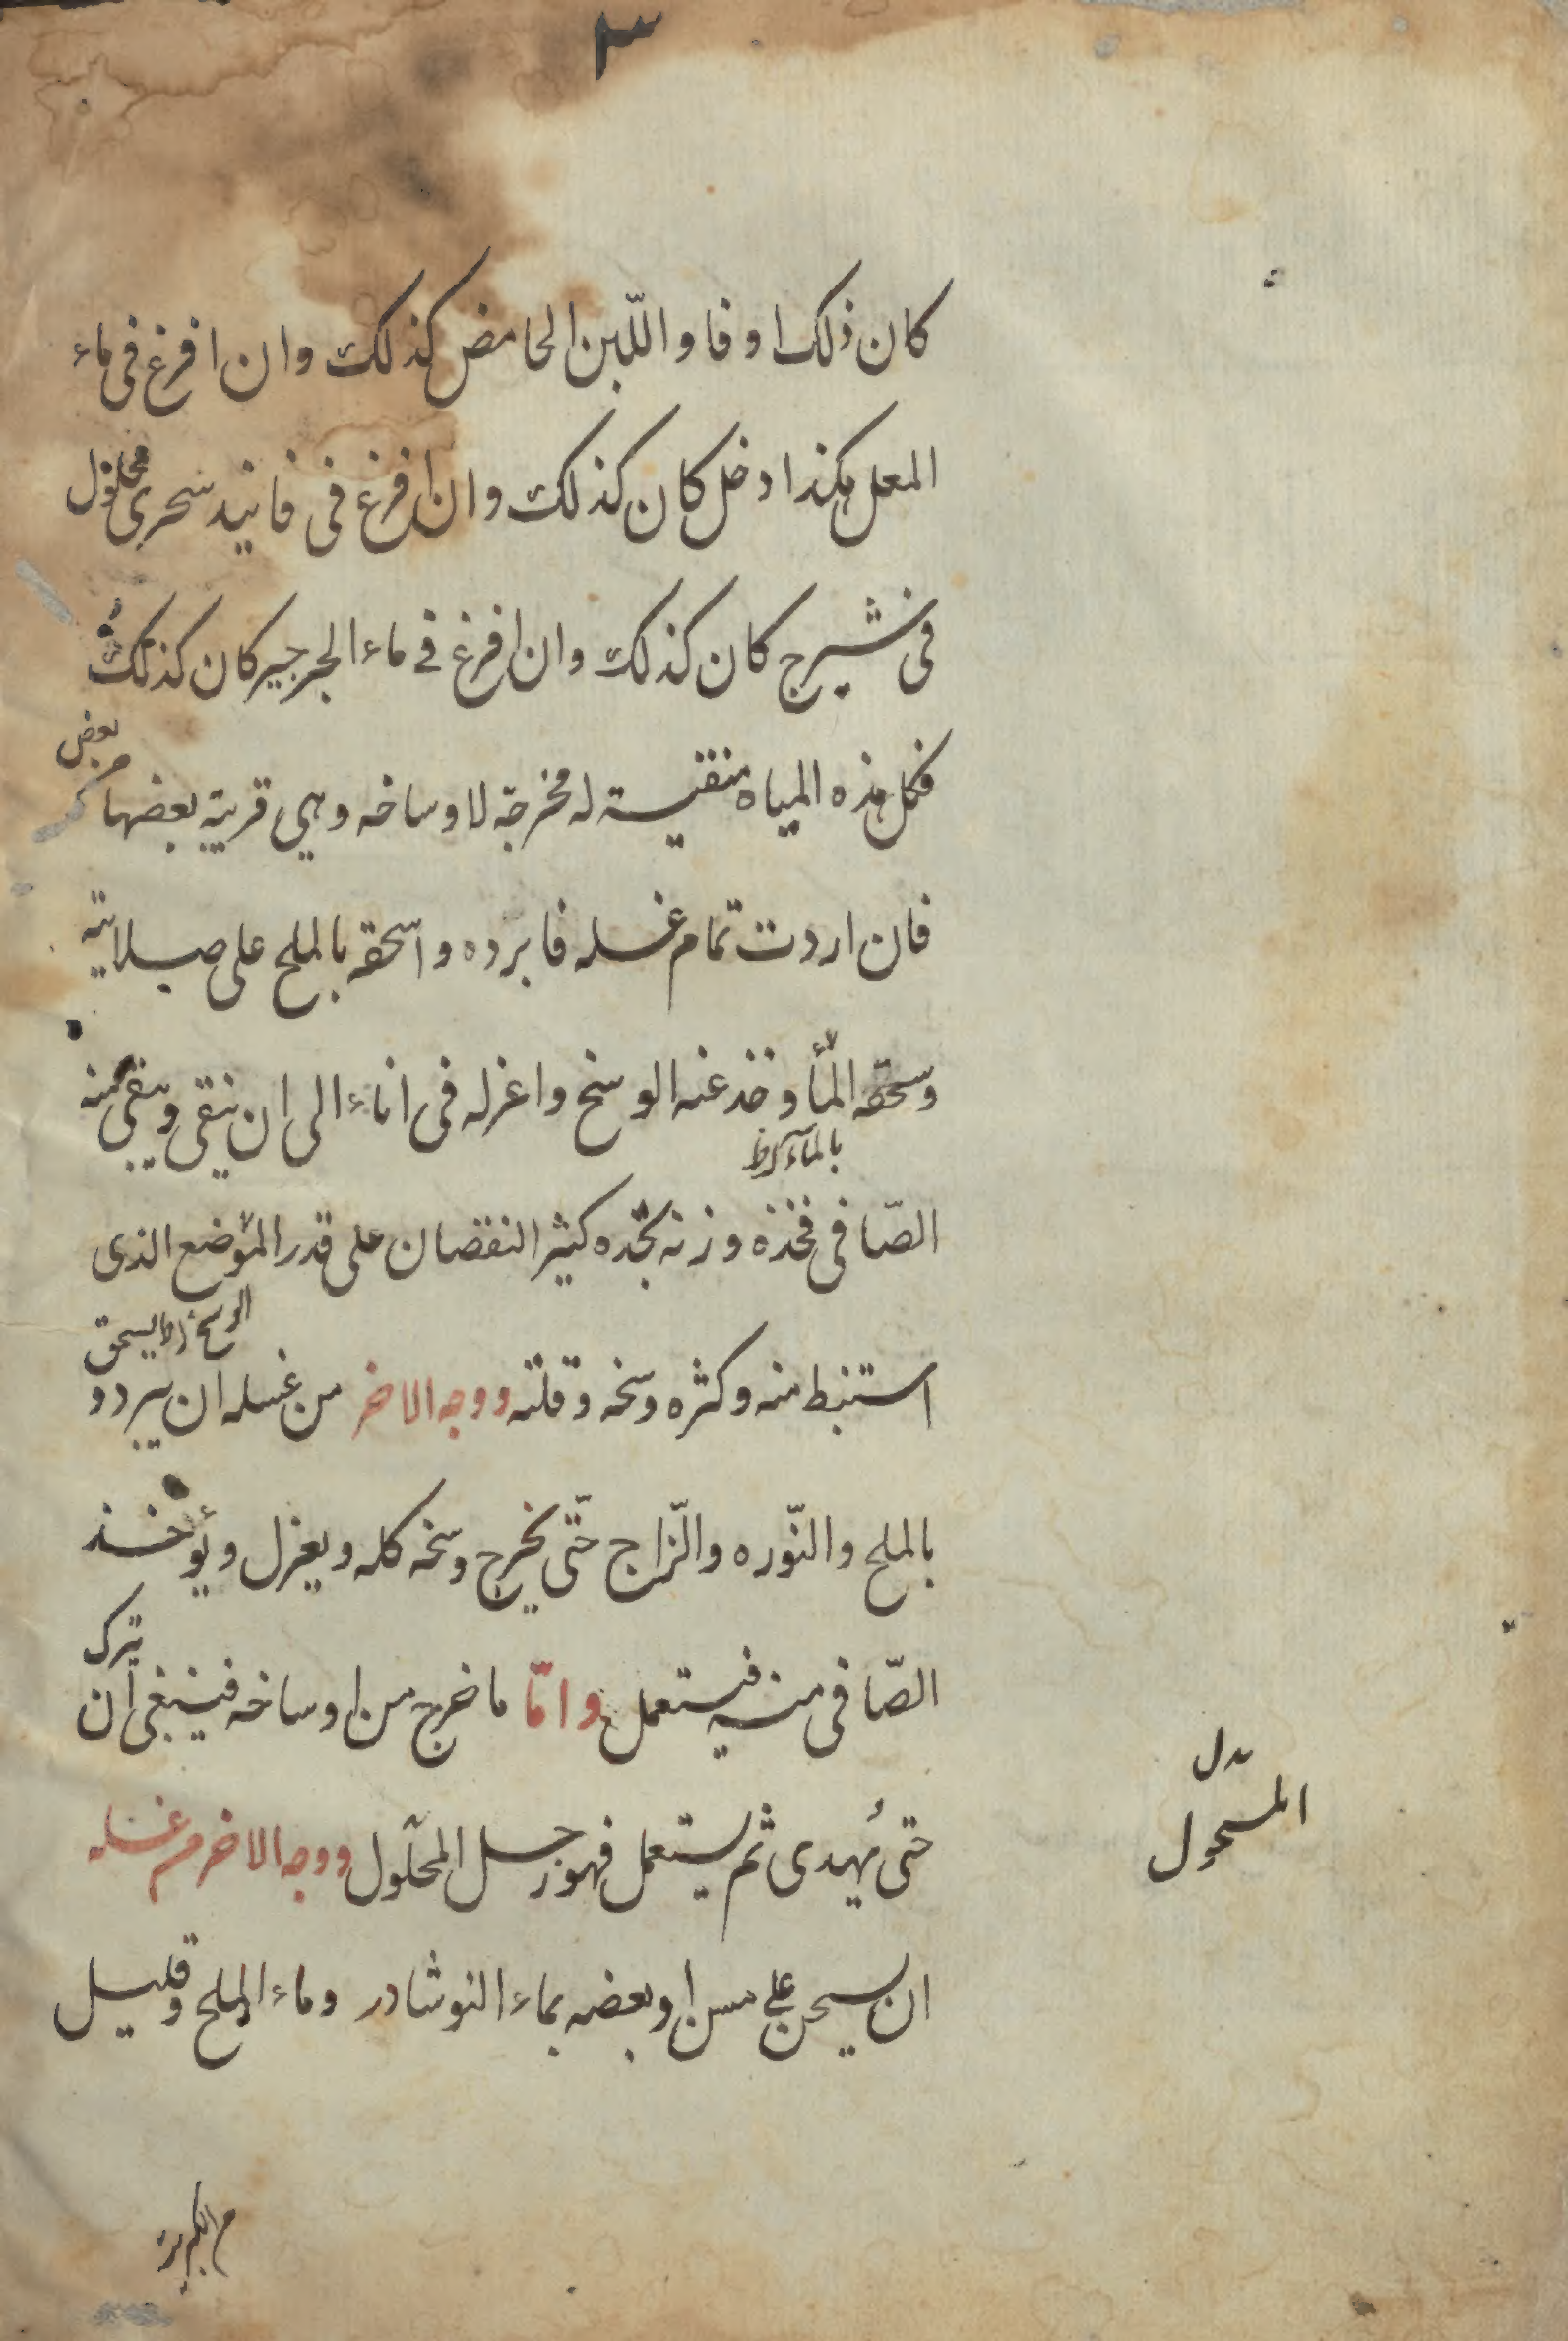 ٣
كان ذلك اوفا واللّبن الحامض كذلك وان افرغ فى ماء
المعل هكذا وخل كان كذلك وان افرغ فى فانيد سحرى محلول
فى شيرج كان كذلك وان افرغ فى ماء الجرجير كان كذلك
فكل هذه المياه منقيسة له مخرجة لاوساخه وهي قريبة بعضها من
بعض
فان اردت تمام غسله فابرده واسحقه بالملح على صلاية
وسحقه المأ وخذ عنه الوسخ واعزله فى اناء الى ان ينقى ويبقى منه
بالماء
الصّافى فخذه وزنه تجده كثير النقصان على قدر الموضع الذى
استنبط منه وكثره وسخه وقلته ووجه الاخر من غسله ان يبرد و
الوسخ يسحق
بالملح والنّوره والزّاج حتّى يخرج وسخه كله ويعزل ويؤخذ
الصّافى منه فيستعمل وامّا ما خرج من اوساخه فينبغى ان
يترك
حتى يُهدى ثم يستعمل فهو زحل المحلول ووجه الاخر من غسله
بدل
المسحول
ان يسحن على مسن او بعضه بماء النوشادر وماء الملح وقليل
من الكبريت